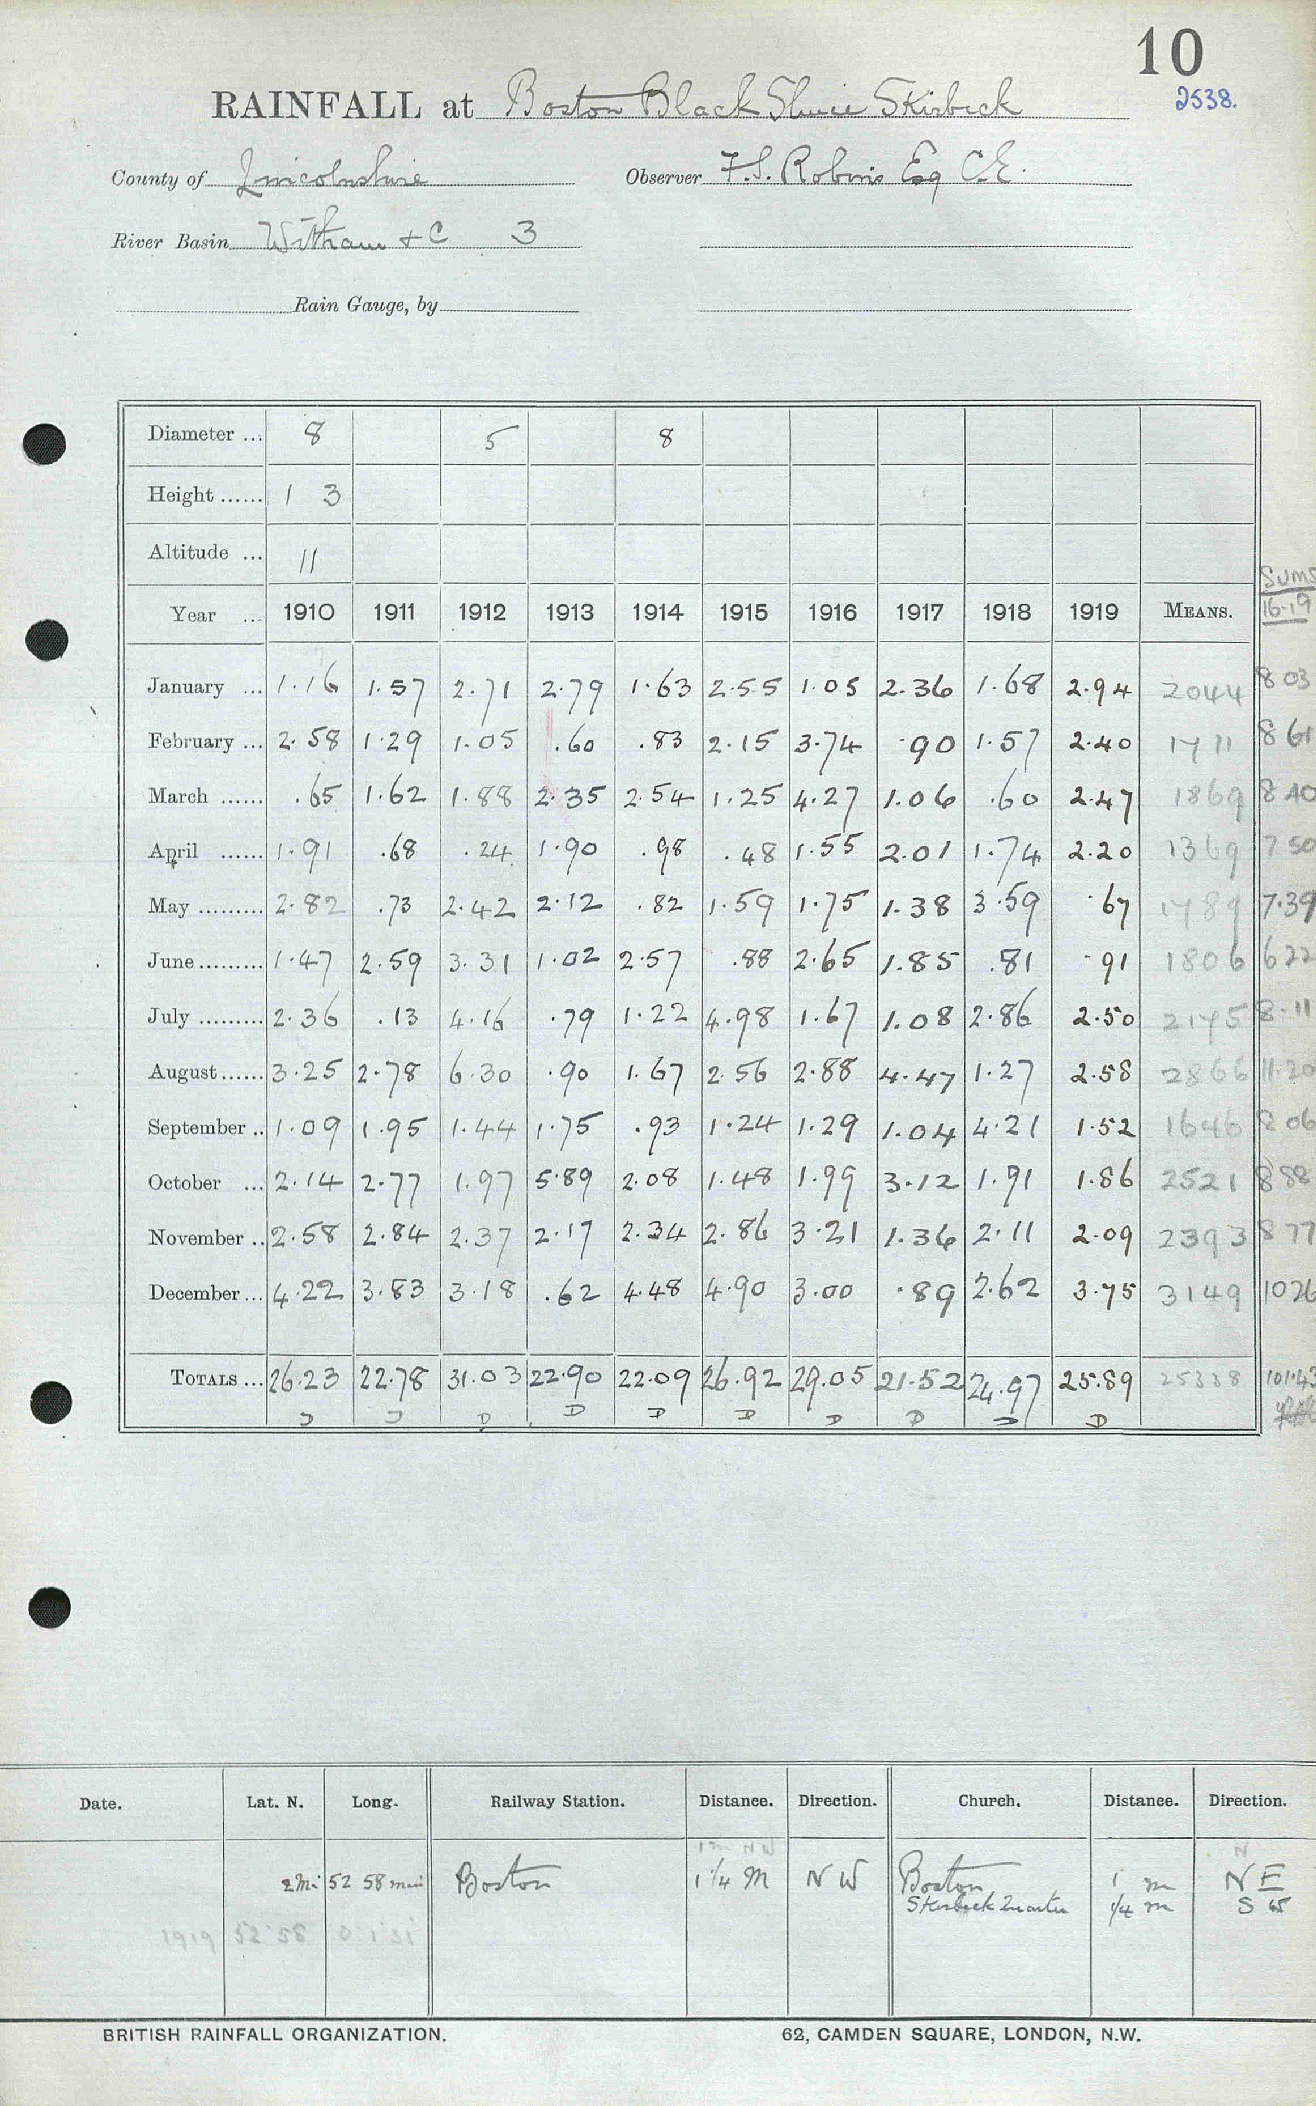 10
RAINFALL at Boston Black Sluice Skirbeck
2538.
County of Lincolnshire Observer F.S. Robins Esq C.E.
River Basin Witham & C 3
Rain Gauge, by
Diameter ... 8 5 8
Height ...... 1 3
Altitude ... 11
Sums
Year ... 1910 1911 1912 1913 1914 1915 1916 1917 1918 1919 MEANS. 16-19
January ... 1.16 1.57 2.71 2.79 1.63 2.55 1.05 2.36 1.68 2.94 2044 8 03
February ... 2.58 1.29 1.05 .60 .83 2.15 3.74 .90 1.57 2.40 1711 8 61
March ...... .65 1.62 1.88 2.35 2.54 1.25 4.27 1.06 .60 2.47 1869 8 40
April ...... 1.91 .68 .24 1.90 .98 .48 1.55 2.01 1.74 2.20 1369 7 50
May ......... 2.82 .73 2.42 2.12 .82 1.59 1.75 1.38 3.59 .67 1789 7.39
June ......... 1.47 2.59 3.31 1.02 2.57 .88 2.65 1.85 .81 .91 1806 6 22
July ......... 2.36 .13 4.16 .79 1.22 4.98 1.67 1.08 2.86 2.50 2175 8.11
August ...... 3.25 2.78 6.30 .90 1.67 2.56 2.88 4.47 1.27 2.58 2866 11.20
September .. 1.09 1.95 1.44 1.75 .93 1.24 1.29 1.04 4.21 1.52 1646 8 06
October ... 2.14 2.77 1.97 5.89 2.08 1.48 1.99 3.12 1.91 1.86 2521 8 88
November .. 2.58 2.84 2.37 2.17 2.34 2.86 3.21 1.36 2.11 2.09 2393 8 77
December ... 4.22 3.83 3.18 .62 4.48 4.90 3.00 .89 2.62 3.75 3149 10 26
TOTALS ... 26.23 22.78 31.03 22.90 22.09 26.92 29.05 21.52 24.97 25.89 25338 101.43
D D D D D D D D D D
Date. Lat. N. Long. Railway Station. Distance. Direction. Church. Distance. Direction.
1m NW N
2 Mi 52 58 min Boston 1 1/4 M NW Boston 1 m NE
Skirbeck Quarter 1/4 m S W
1919 52 58 0 1 31
BRITISH RAINFALL ORGANIZATION. 62, CAMDEN SQUARE, LONDON, N.W.